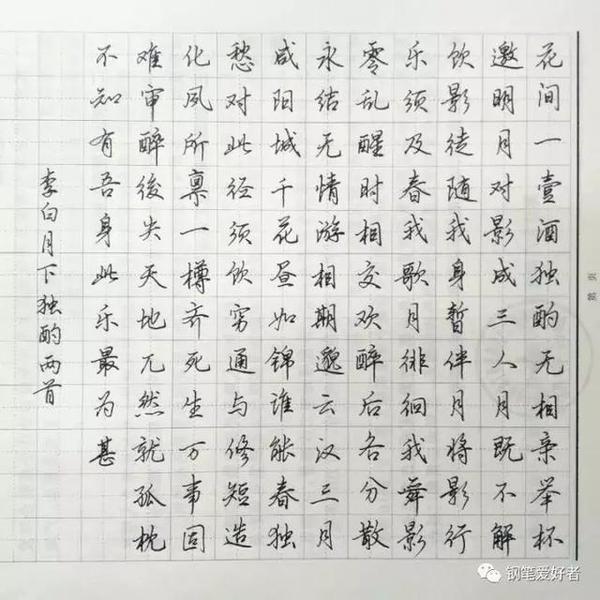 花间一壹酒独酌无相亲举杯
邀明月对影成三人月既不解
饮影徒随我身暂伴月将影行
乐须及春我歌月徘徊我舞影
零乱醒时相交欢醉后各分散
永结无情游相期邈云汉三月
咸阳城千花昼如锦谁能春独
愁对此径须饮穷通与修短造
化夙所禀一樽齐死生万事固
难审醉後失天地兀然就孤枕
不知有吾身此乐最为甚
李白月下独酌两首
钢笔爱好者